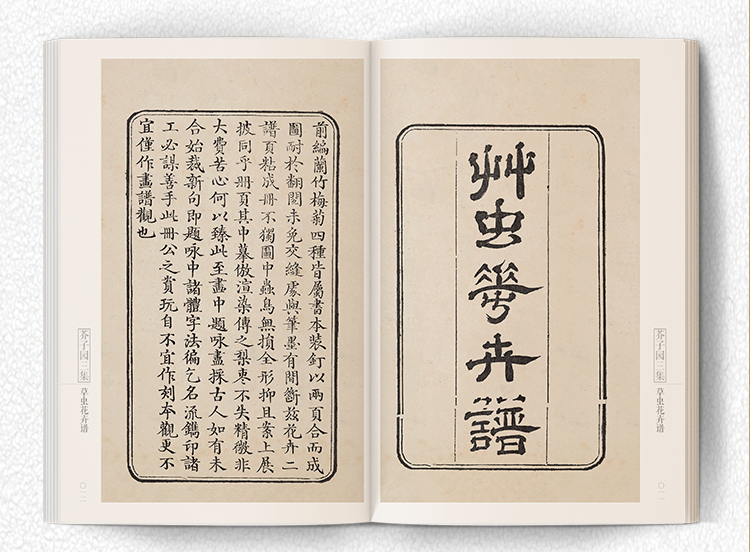 艸虫華卉譜
芥子园三集
草虫花卉谱
前編蘭竹梅菊四種皆屬書本裝釘以兩頁合而成
圖耐於翻閱未免交縫處與筆墨有間斷茲花卉二
譜頁粘成冊不獨圖中蟲鳥無損全形抑且案上展
披同乎冊頁其中摹倣渲染傳之梨棗不失精微非
大費苦心何以臻此至畫中題咏盡採古人如有未
合始裁新句即題咏中諸體字法徧乞名流鐫印諸
工必謀善手此冊公之賞玩自不宜作刻本觀更不
宜僅作畫譜觀也
芥子园三集
草虫花卉谱